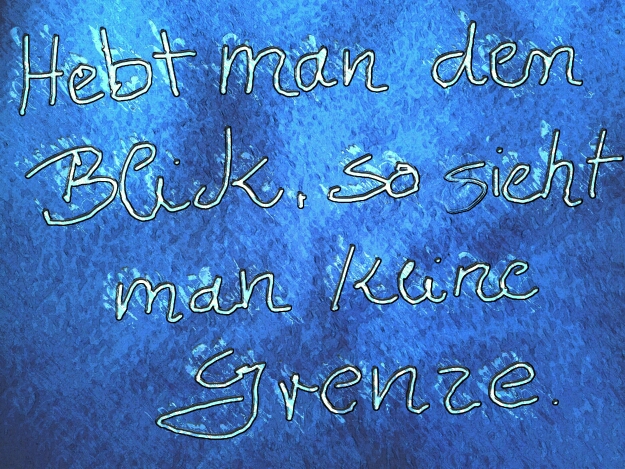 Hebt man den
Blick, so sieht
man keine
Grenze.